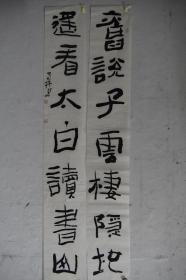 旧說子雲棲隱地
遥看太白讀書山